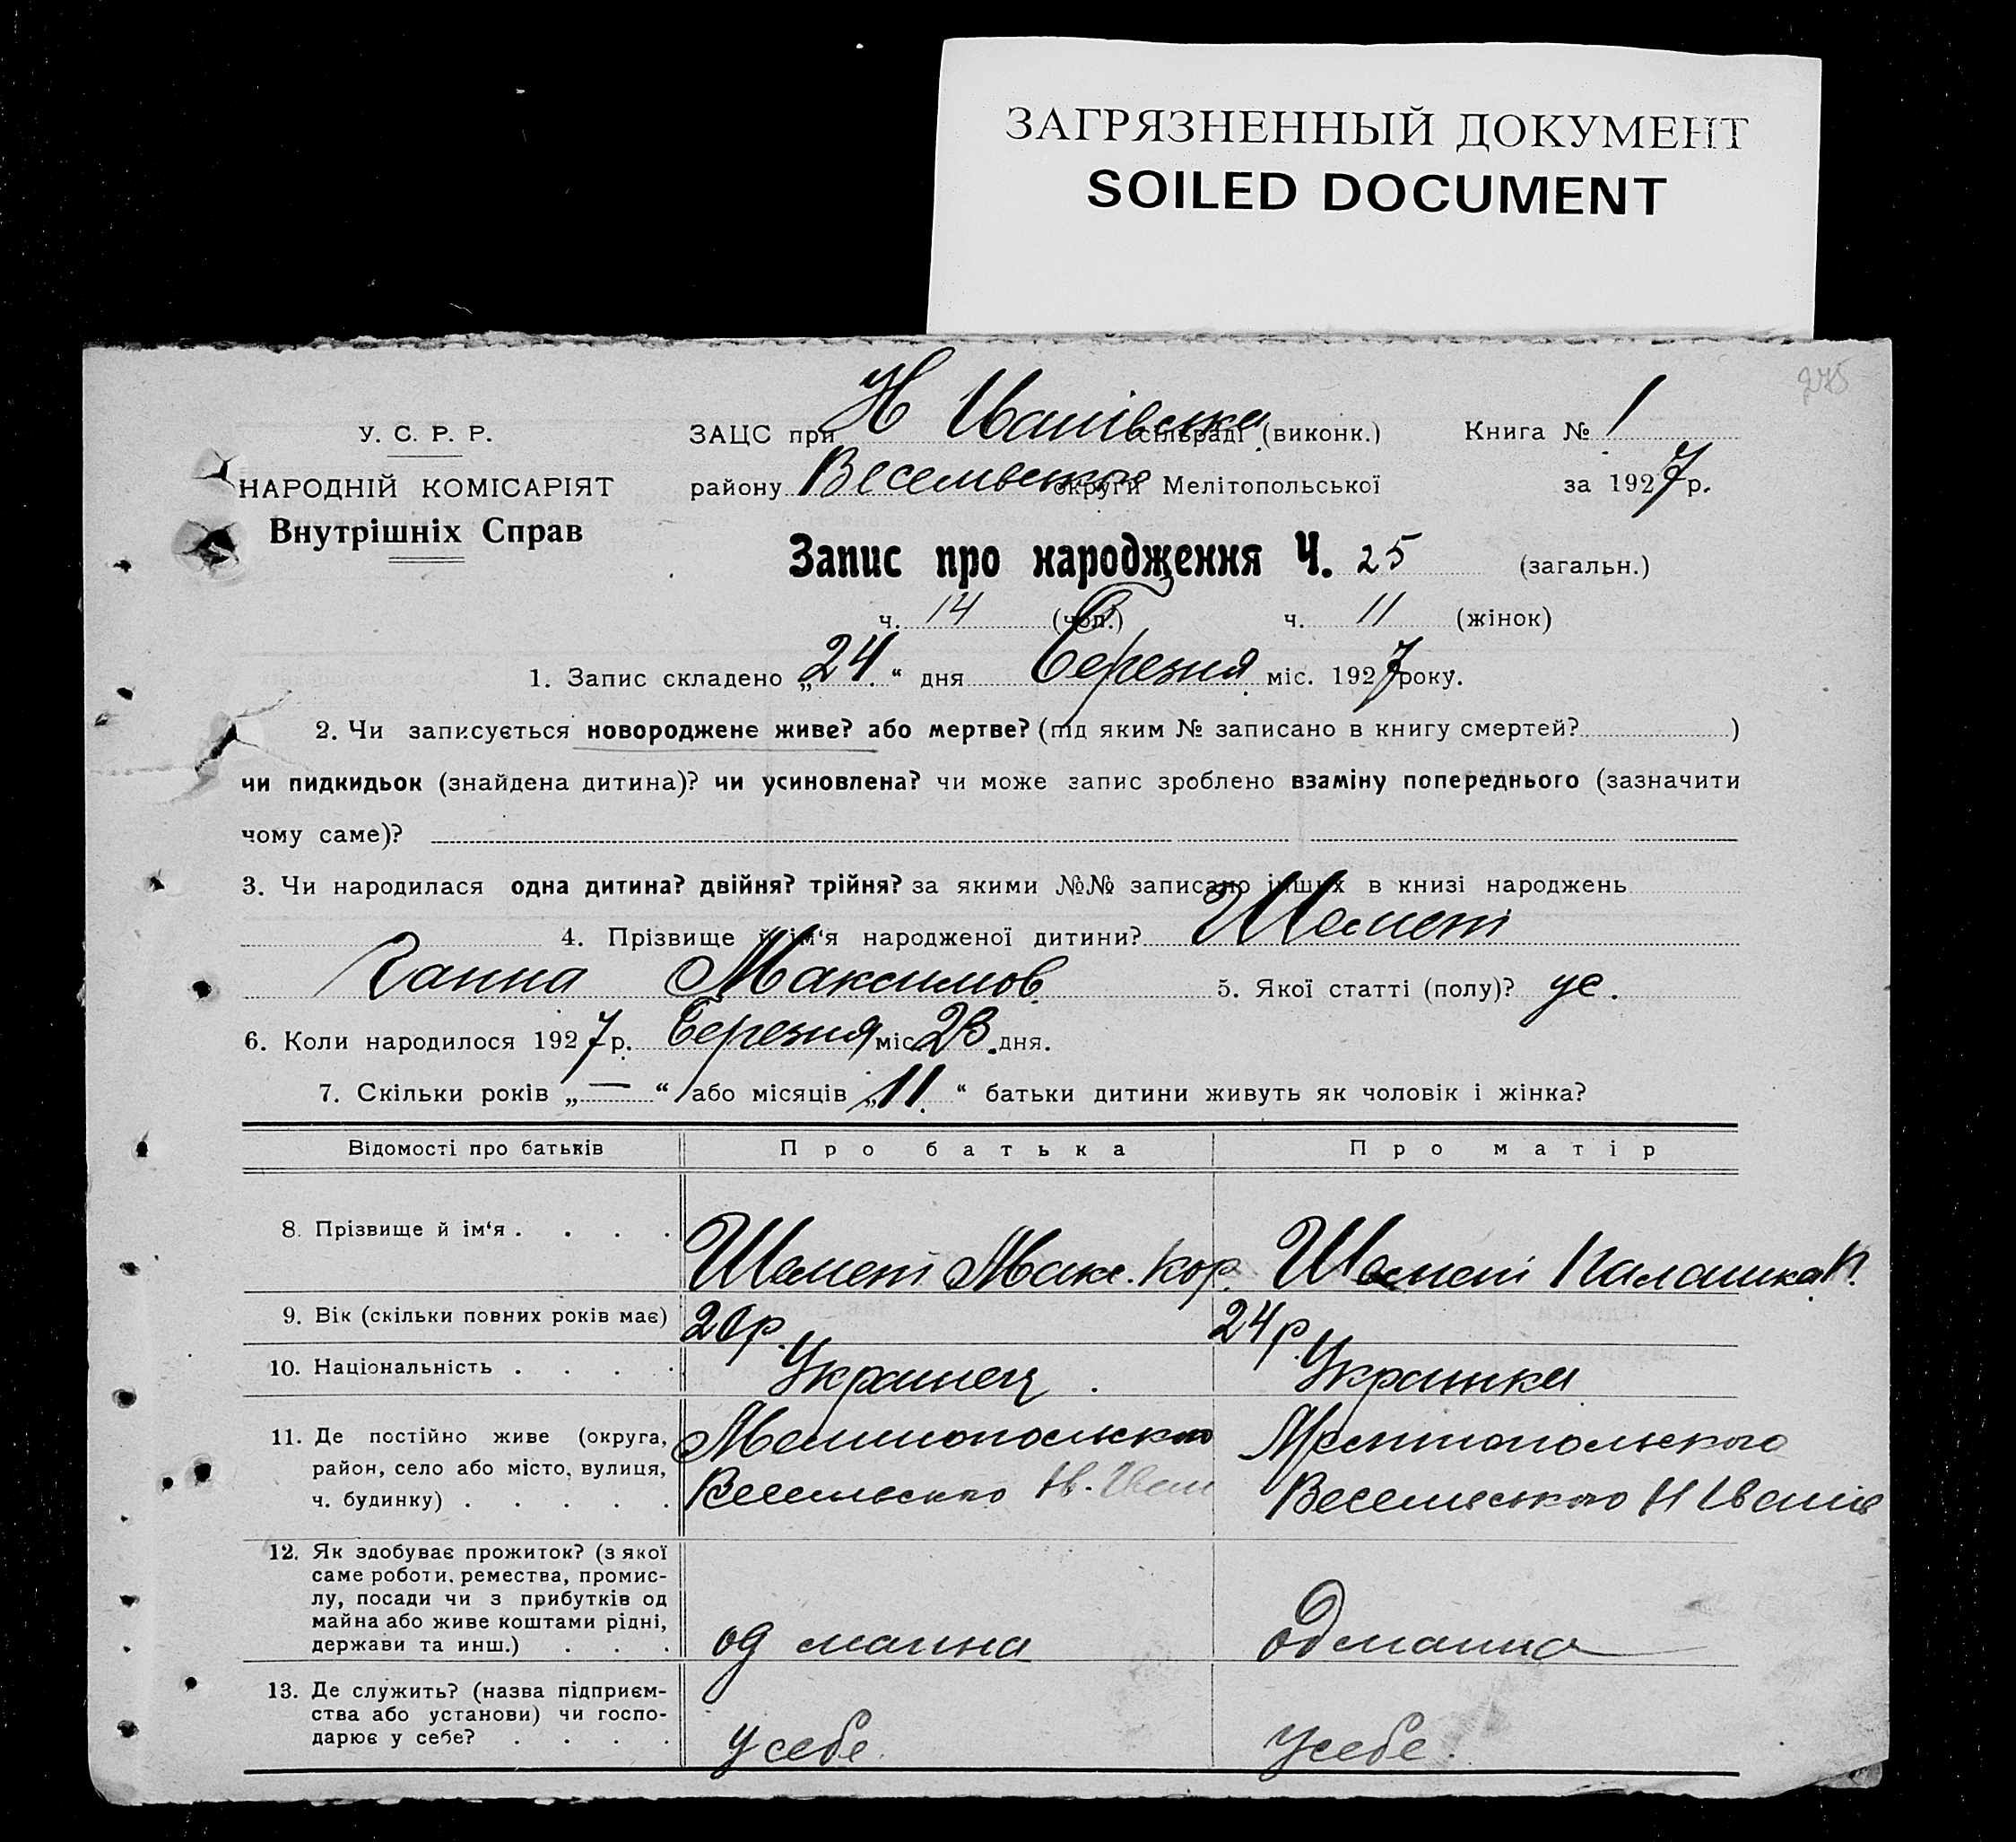 ЗАГРЯЗНЕННЫЙ ДОКУМЕНТ
SOILED DOCUMENT
275
У. С. Р. Р.
НАРОДНІЙ КОМІСАРІЯТ
Внутрішніх Справ
ЗАЦС при Н Іванівська сільраді (виконк.) Книга № 1
району Весельського округи Мелітопольської за 1927 р.
Запис про народження Ч. 25 (загальн.)
ч. 14 (чол.) ч. 11 (жінок)
1. Запис складено „24“ дня Березня міс. 1927 року.
2. Чи записується новороджене живе? або мертве? (під яким № записано в книгу смертей? )
чи пидкидьок (знайдена дитина)? чи усиновлена? чи може запис зроблено взаміну попереднього (зазначити
чому саме)?
3. Чи народилася одна дитина? двійня? трійня? за якими №№ записано інших в книзі народжень
4. Прізвище й ім‘я народженої дитини? Шемет
Ганна Максимов. 5. Якої статті (полу)? же.
6. Коли народилося 1927 р. Березня міс. 23 дня.
7. Скільки років „—“ або місяців „11“ батьки дитини живуть як чоловік і жінка?
Відомості про батьків Про батька Про матір
8. Прізвище й ім‘я . . . . Шемет Макс. Кор. Шемет Палашка П.
9. Вік (скільки повних років має) 20р. 24р.
10. Національність . . . . Украинец . Украинка
11. Де постійно живе (округа, Мелитопольского Мелітопольського
район, село або місто, вулиця,
ч. будинку) . . . . . Весельского Нв. Иван Весельського Н Іванів
12. Як здобуває прожиток? (з якої
саме роботи, ремества, промис-
лу, посади чи з прибутків од
майна або живе коштами рідні,
держави та инш.) . . . од маина од маина
13. Де служить? (назва підприєм-
ства або установи) чи госпо-
дарює у себе? . . . . у себе. у себе.